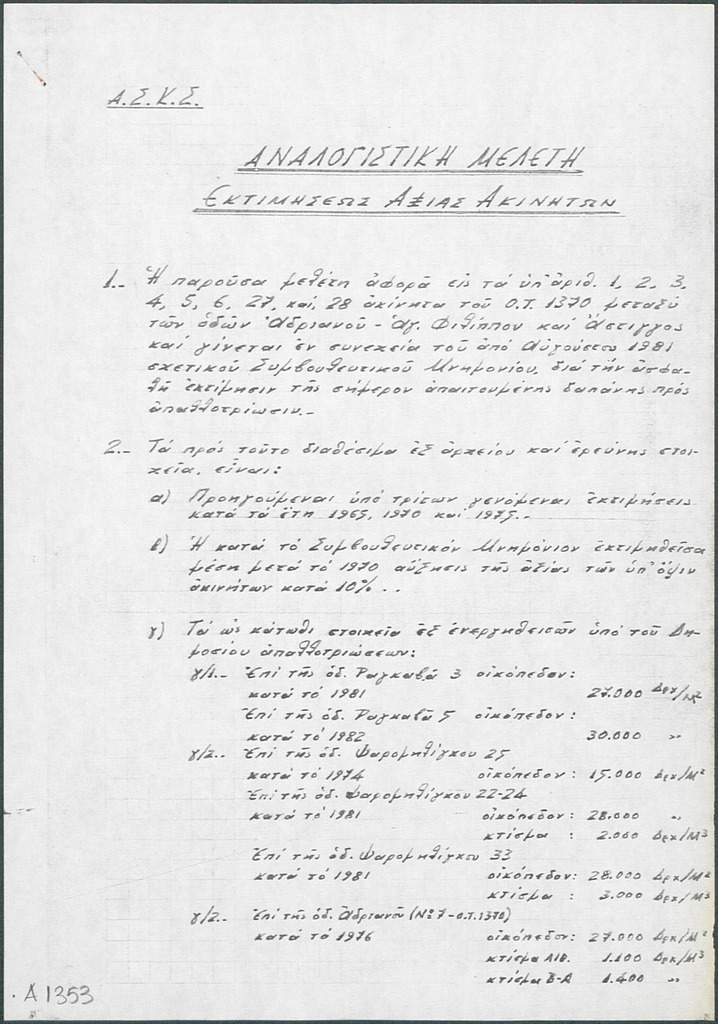 Α.Σ.Κ.Σ.
ΑΝΑΛΟΓΙΣΤΙΚΗ ΜΕΛΕΤΗ
ΕΚΤΙΜΗΣΕΩΣ ΑΞΙΑΣ ΑΚΙΝΗΤΩΝ
1.- Ἡ παροῦσα μελέτη ἀφορᾶ εἰς τά ὑπ' ἀριθ. 1, 2, 3,
4, 5, 6, 27, καί, 28 ἀκίνητα τοῦ Ο.Τ. 1370 μεταξύ
τῶν ὁδῶν Ἀδριανοῦ - Ἁγ. Φιλίππου καί Ἄστιγγος
καί γίνεται ἐν συνεχεία τοῦ ἀπό Αὐγούστου 1981
σχετικοῦ Συμβουλευτικοῦ Μνημονίου, διά τήν ἀσφα-
λῆ ἐκτίμησιν τῆς σήμερον ἀπαιτουμένης δαπάνης πρός
ἀπαλλοτρίωσιν.-
2.- Τά πρός τοῦτο διαθέσιμα ἐξ ἀρχείου καί ἐρεύνης στοι-
χεῖα, εἶναι:
α) Προηγούμεναι ὑπό τρίτων γενόμεναι ἐκτιμήσεις
κατά τά ἔτη 1965, 1970 καί 1975..
β) Ἡ κατά τό Συμβουλευτικόν Μνημόνιον ἐκτιμηθεῖσα
μέση μετά τό 1970 αὔξησις τῆς ἀξίας τῶν ὑπ' ὄψιν
ἀκινήτων κατά 10% ..
γ) Τά ὡς κάτωθι στοιχεῖα ἐξ ἐνεργηθεισῶν ὑπό τοῦ Δη-
μοσίου ἀπαλλοτριώσεων:
γ/1.- Ἐπί τῆς ὁδ. Ραγκαβᾶ 3 οἰκόπεδον:
κατά τό 1981 27.000 Δρχ/Μ²
Ἐπί τῆς ὁδ. Ραγκαβᾶ 5 οἰκόπεδον:
κατά τό 1982 30.000 "
γ/2.- Ἐπί τῆς ὁδ. Ψαρομηλίγκου 25
κατά τό 1974 οἰκόπεδον: 15.000 Δρχ/Μ²
Ἐπί τῆς ὁδ. Ψαρομηλίγκου 22-24
κατά τό 1981 οἰκόπεδον: 28.000 "
κτίσμα : 2.000 Δρχ/Μ³
Ἐπί τῆς ὁδ. Ψαρομηλίγκου 33
κατά τό 1981 οἰκόπεδον: 28.000 Δρχ/Μ²
κτίσμα : 3.000 Δρχ/Μ³
γ/2.- Ἐπί τῆς ὁδ. Ἀδριανοῦ (Νο 7-Ο.Τ.1370)
κατά τό 1976 οἰκόπεδον: 27.000 Δρχ/Μ²
κτίσμα 1.100 Δρχ/Μ³
κτίσμα Β-Α 1.400 "
A 1353